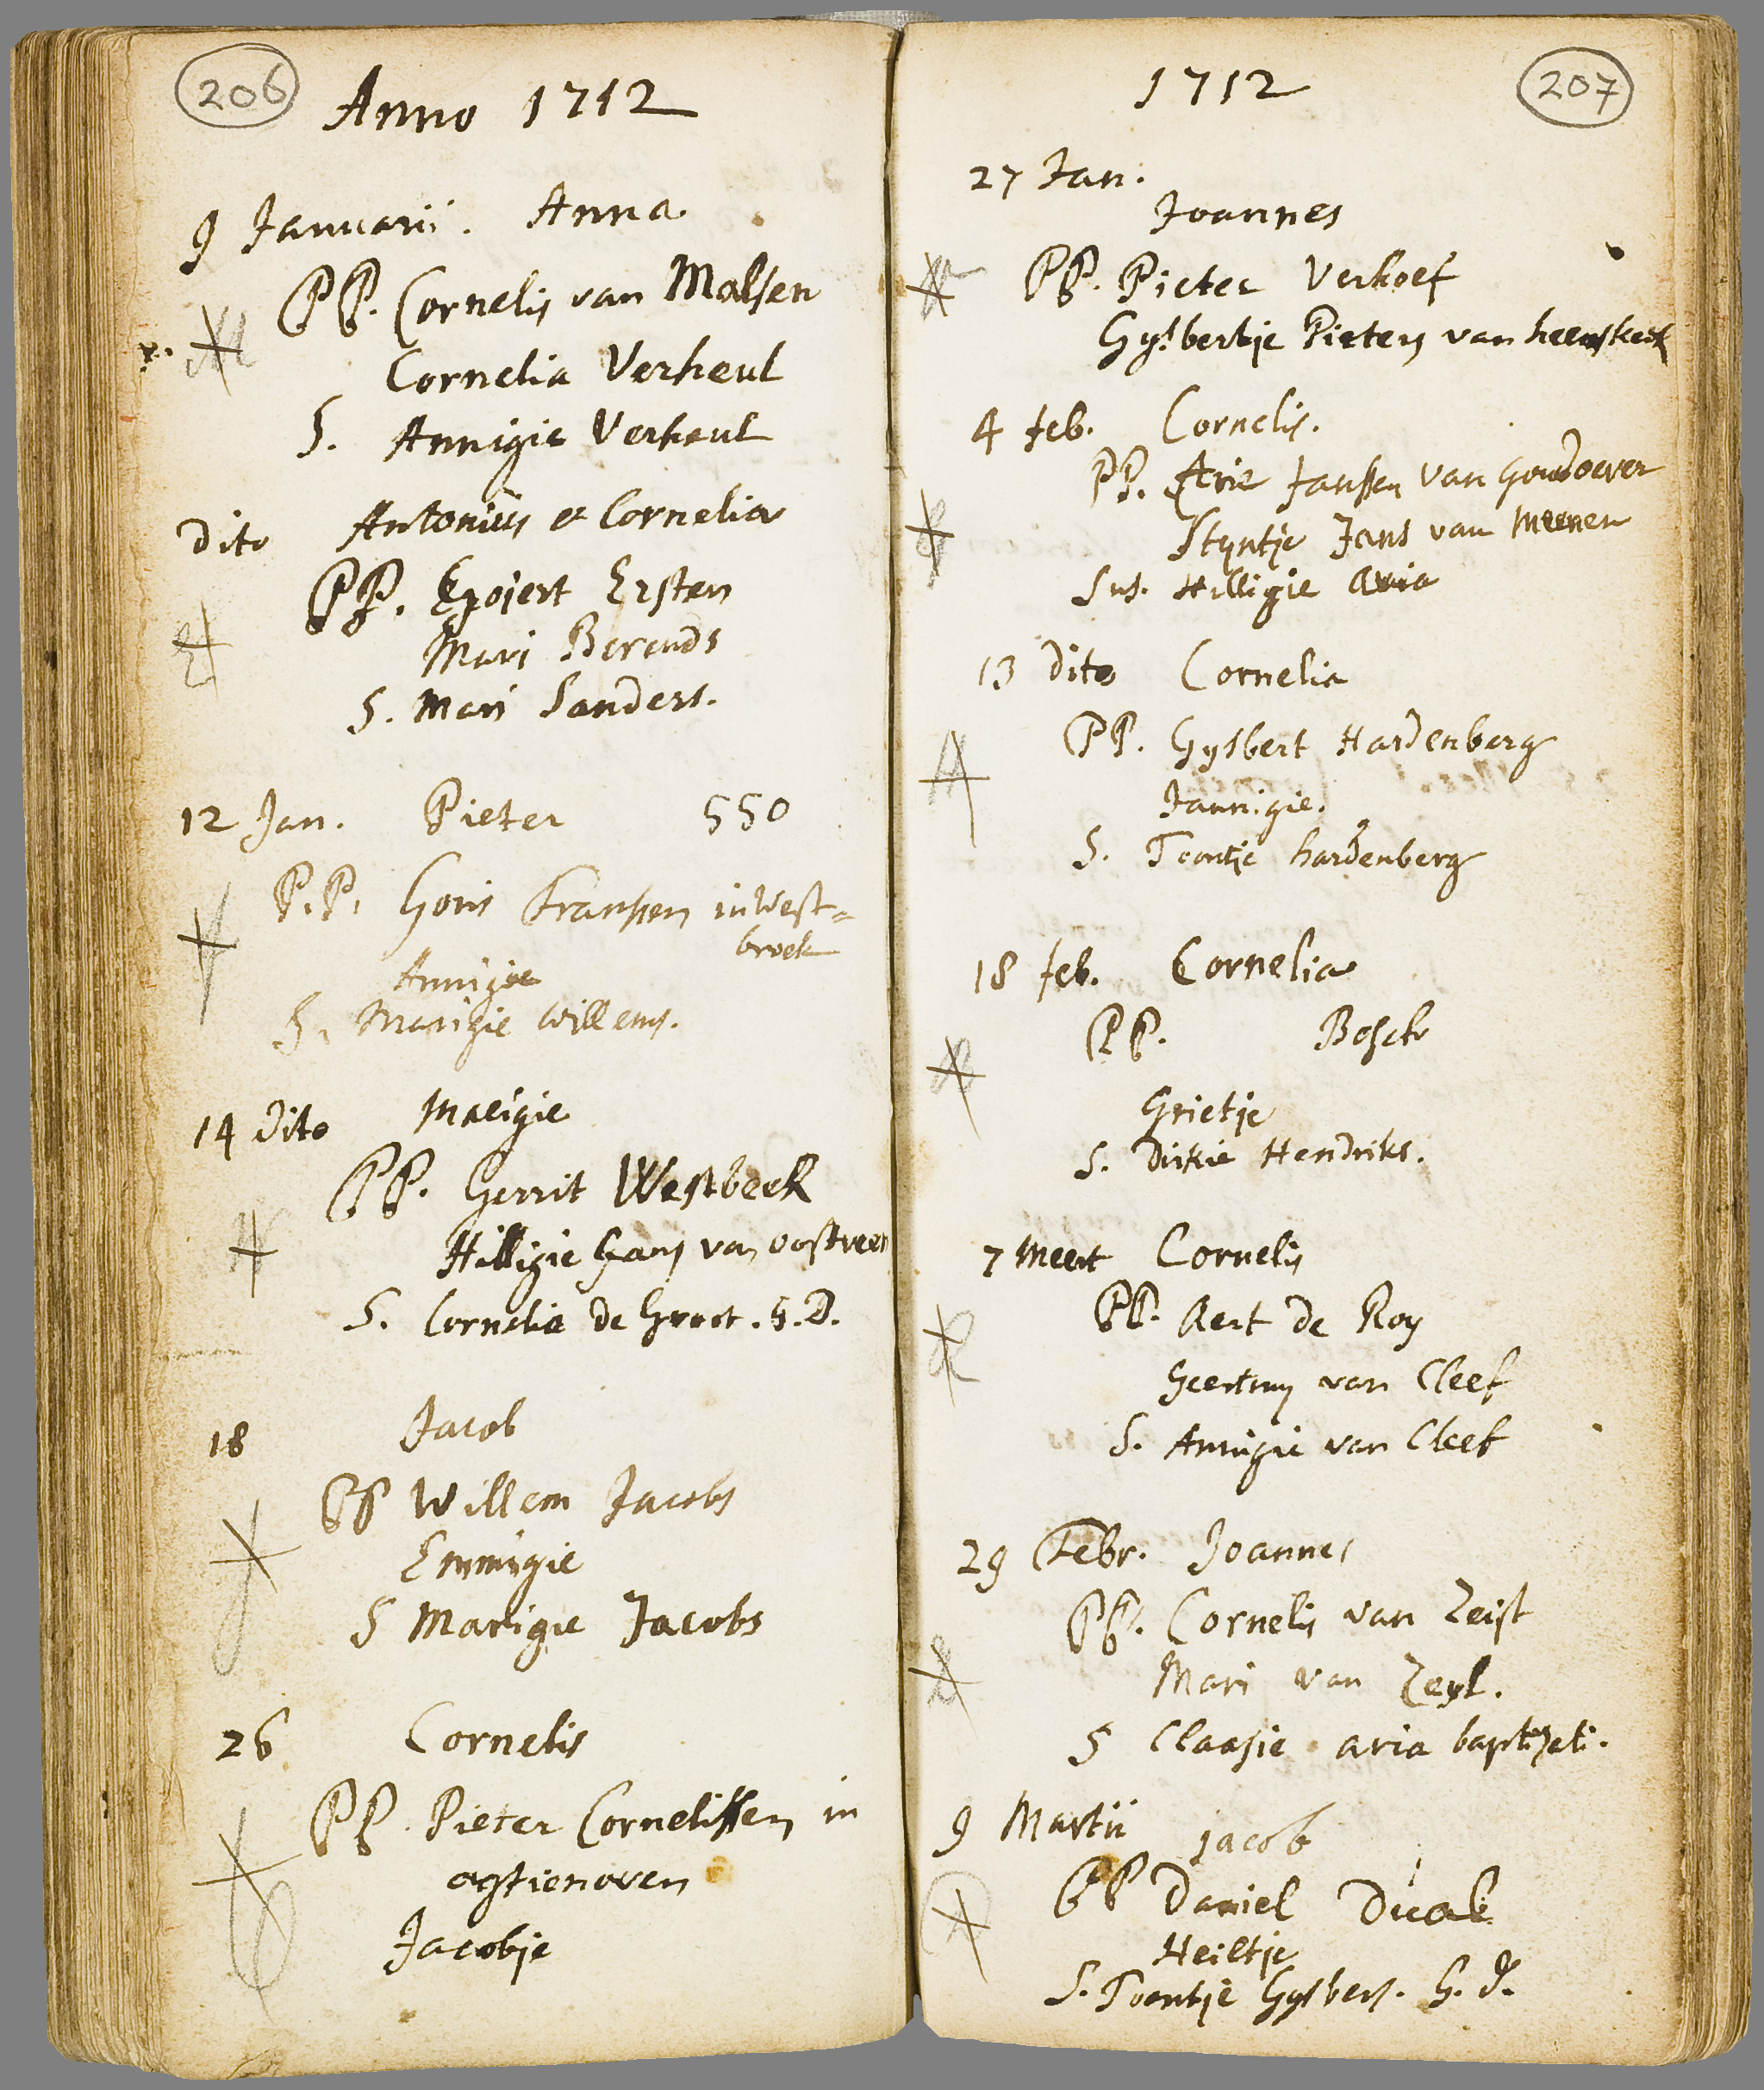 206
Anno 1712
9 Januarii. Anna
PP. Cornelis van Malsen
Cornelia Verheul
S. Annigie Verheul
Dito Antonius et Cornelia
PP. Ersten
Mari Berends
S. Mari Sanders.
12 Jan. Pieter 550
P.P. Goris Franssen in West=
broek
Annigie
S. Marigie Willems.
14 Dito Maeigie
PP. Gerrit Westbeek
Hilligie van oostveen
S. Cornelia de Groot. S.D.
18 Jacob
PP Willem Jacobs
Emmigie
S Marigie Jacobs
26 Cornelis
PP. Pieter Cornelissen in
agtienoven
Jacobje
1712
207
27 Jan.
Joannes
PP. Pieter Verhoef
Gysbertje Pieters van heemskerk
4 feb. Cornelis.
PP. Arie Janssen van Goudoever
Styntje Jans van Meenen
Sus. Hilligie avia
13 Dito Cornelia
PP. Gysbert Hardenberg
Jannigie.
S. Teontje hardenberg
18 feb. Cornelia
PP. Bosch
Grietje
S. Dirkie Hendriks.
7 Meert Cornelis
PP. Aert de Roy
Geertruy van Cleef
S. Annigie van Cleef
29 Febr. Joannes
PP. Cornelis van Zeist
Mari van Zeyl.
S Claasie avia baptizati.
9 Martii jacob
PP Daniel
Heiltje
S. Toontje Gysbers. G. D.